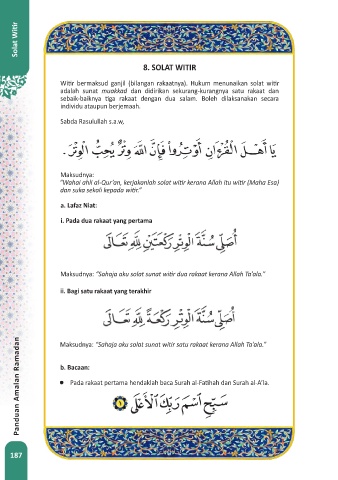 Solat Witir
8. SOLAT WITIR
Witir bermaksud ganjil (bilangan rakaatnya). Hukum menunaikan solat witir
adalah sunat muakkad dan didirikan sekurang-kurangnya satu rakaat dan
sebaik-baiknya tiga rakaat dengan dua salam. Boleh dilaksanakan secara
individu ataupun berjemaah.
Sabda Rasulullah s.a.w,
يَا أَهْلَ الْقُرْءَانِ أَوْتِرُوا فَإِنَّ اللَّهَ وِتْرٌ يُحِبُّ الْوِتْرَ .
Maksudnya:
"Wahai ahli al-Qur'an, kerjakanlah solat witir kerana Allah itu witir (Maha Esa)
dan suka sekali kepada witir."
a. Lafaz Niat:
i. Pada dua rakaat yang pertama
أُصَلِّي سُنَّةَ الْوِتْرِ رَكْعَتَيْنِ لِلَّهِ تَعَالَى
Maksudnya: "Sahaja aku solat sunat witir dua rakaat kerana Allah Ta'ala."
ii. Bagi satu rakaat yang terakhir
أُصَلِّي سُنَّةَ الْوِتْرِ رَكْعَةً لِلَّهِ تَعَالَى
Maksudnya: "Sahaja aku solat sunat witir satu rakaat kerana Allah Ta'ala."
b. Bacaan:
● Pada rakaat pertama hendaklah baca Surah al-Fatihah dan Surah al-A'la.
سَبِّحِ ٱسْمَ رَبِّكَ ٱلْأَعْلَى ١
Panduan Amalan Ramadan
187